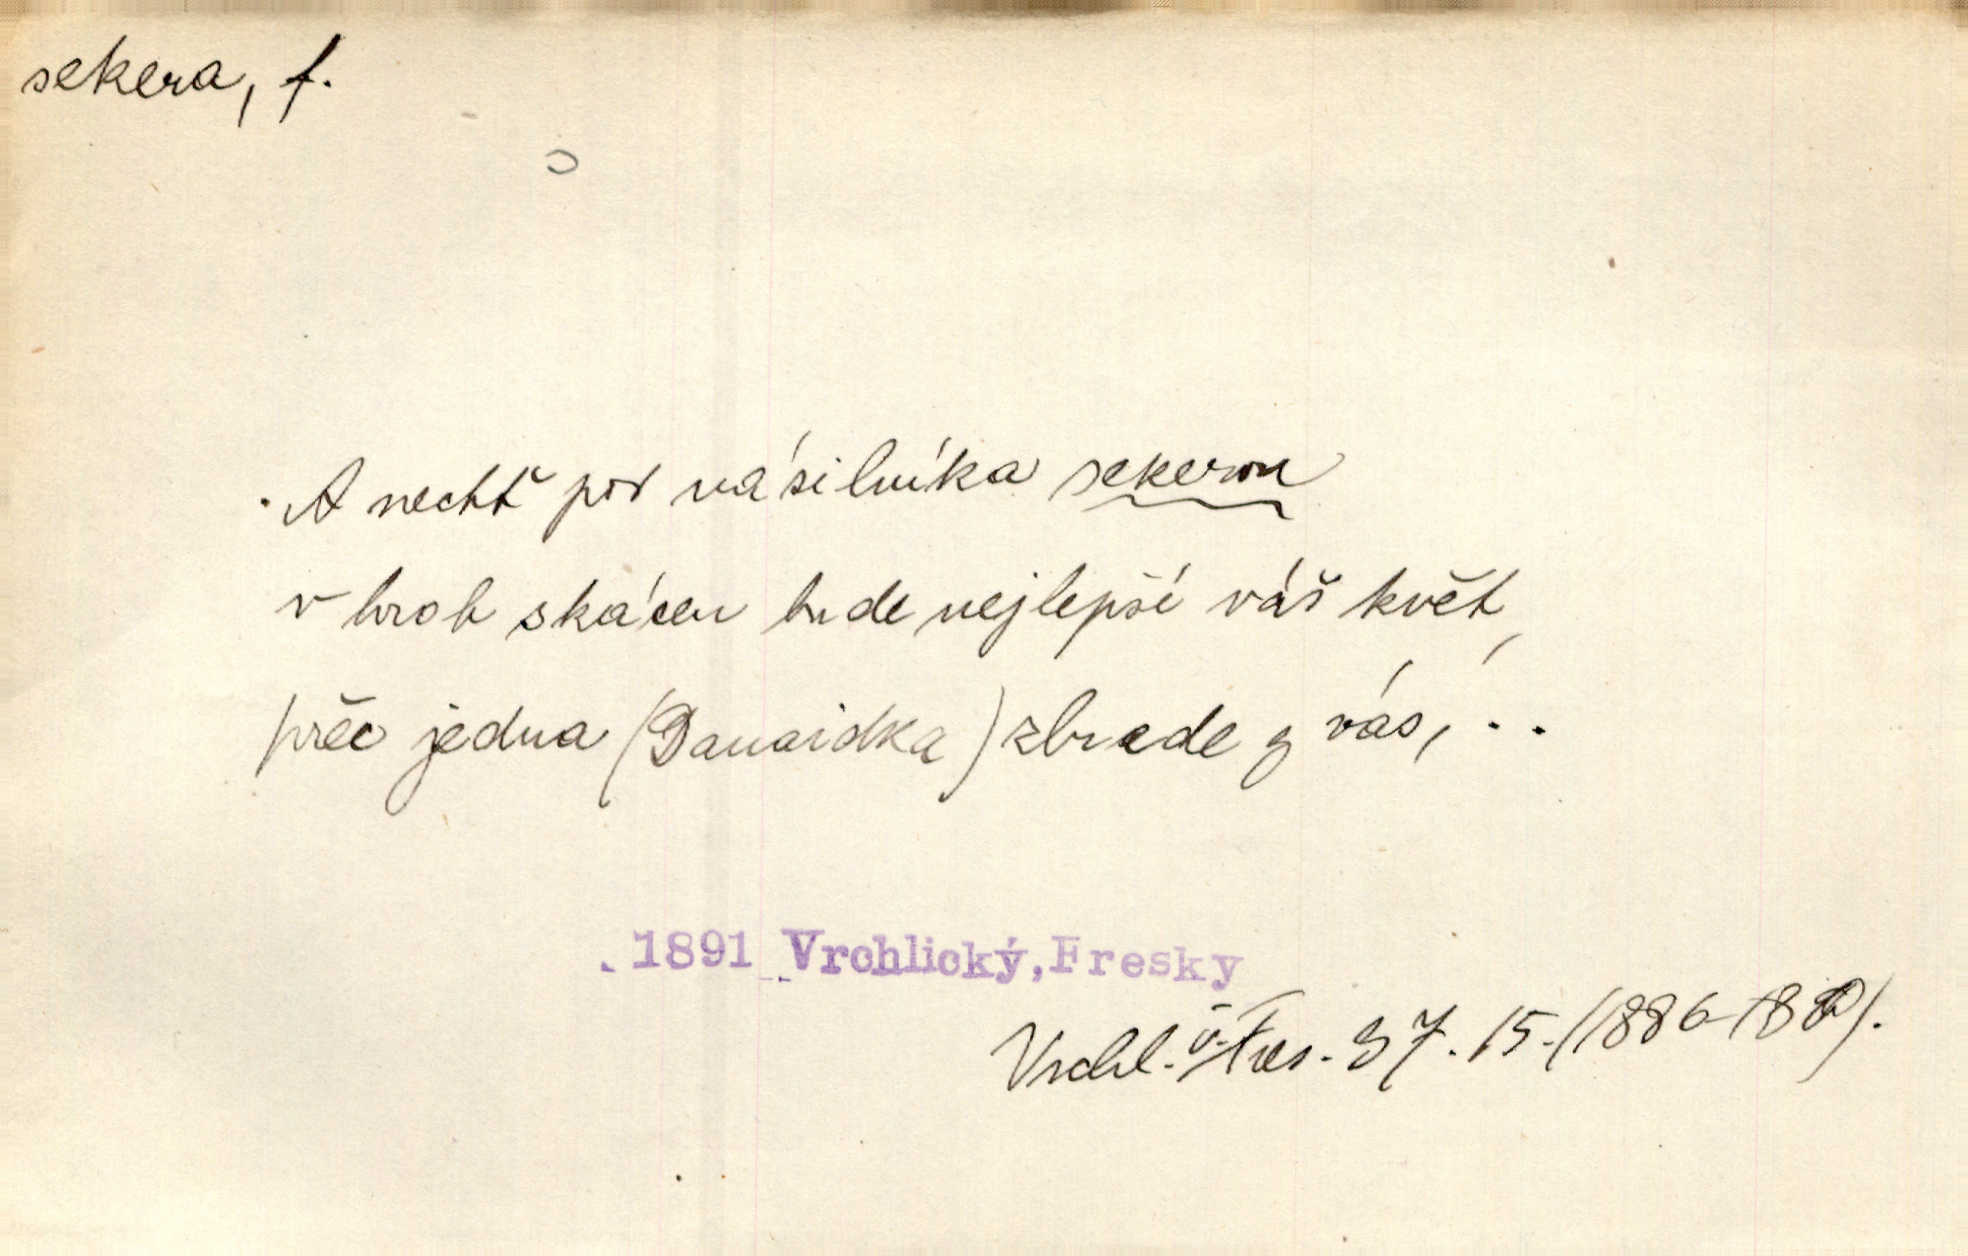 sekera, f.
A nechť pod násilníka sekerou
v hrob skácen bude nejlepší váš květ,
přec jedna (Danaidka) zbude z vás, ..
1891 Vrchlický, Fresky
Vrchl. Fres. 37. 15. (1886-